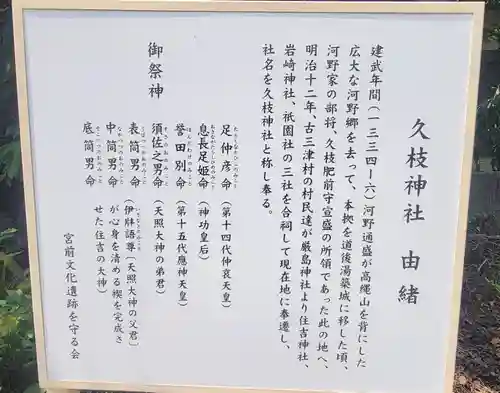 久枝神社 由緒
建武年間(一三三四ー六)河野通盛が高縄山を背にした
広大な河野郷を去って、本拠を道後湯築城に移した頃、
河野家の部将、久枝肥前守宣盛の所領であった此の地へ、
明治十二年、古三津村の村民達が厳島神社より住吉神社、
岩崎神社、祇園社の三社を合祠して現在地に奉遷し、
社名を久枝神社と称し奉る。
御祭神
足仲彦命(第十四代仲哀天皇)
息長足姫命(神功皇后)
誉田別命(第十五代應神天皇)
須佐之男命(天照大神の弟君)
表筒男命
中筒男命
底筒男命
(伊弉諾尊〔天照大神の父君〕
が心身を清める禊を完成さ
せた住吉の大神)
宮前文化遺跡を守る会